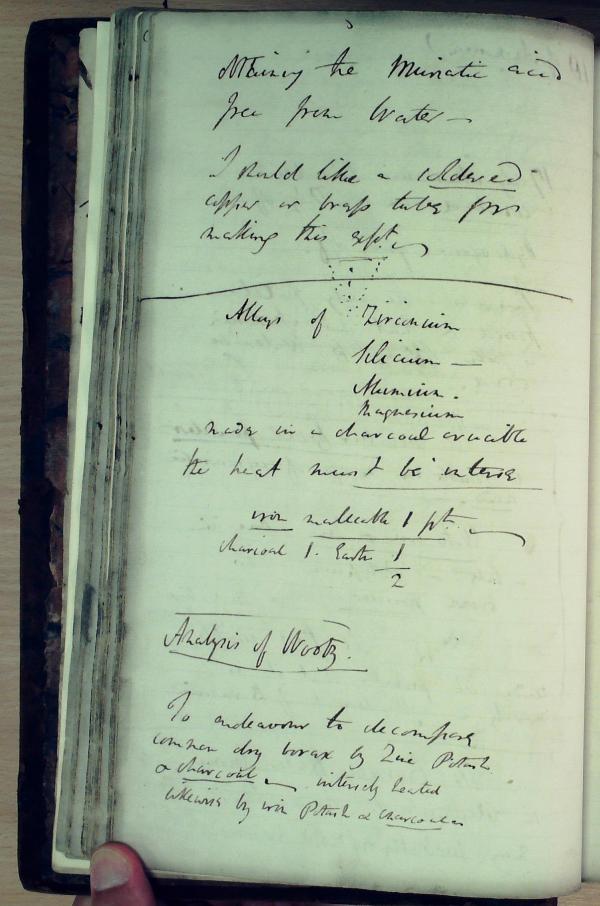 obtaining the Muriatic acid
free from Water —
I should like a soldered
copper or brass tube for
making this expt.
Alloys of Zirconium
Silicium —
Alumium.
Magnesium
made in a charcoal crucible
the heat must be intense
iron malleable 1 pt.
charcoal 1. Earth 1/2
Analysis of Wootz.
To endeavour to decompose
common dry borax by Zinc Potash
& charcoal intensely heated
likewise by iron Potash & charcoal